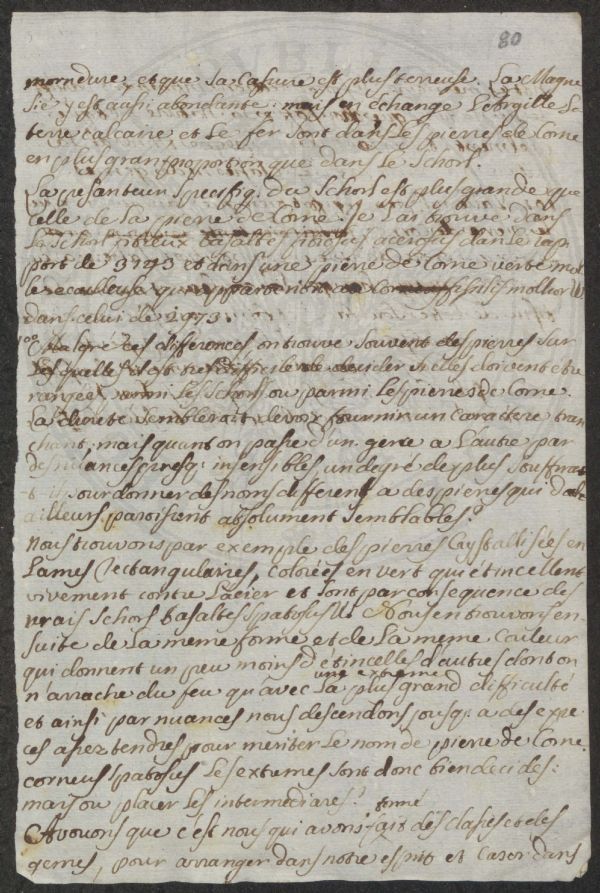 80
morndure, et que sa Casure est plus terreuse. La Magne
sie y est aussi abondante: mais en échange L'Argille La
terre calcaire et Le fer sont dans Les pierres de Corne
en plus gran proportion que dans Le Schorl.
La pesanteur specifiq. du Schorl est plus grande que
Celle de La pierre de Corne. Je L'ai trouvé dans
Le Schorl basaltes dans Le rap
port de 3193 et dans une pierre de Corne verte mol
le
dans celui de 2973.
Malgré ces differences on trouve souvent des pierres sur
Lesquelles il est difficile de decider si elles doivent etre
rangées parmi Les Schorls ou parmi Les pierres de Corne.
La dureté sembleroit devoir fournir un Caractere tran
chant, mais quant on passe d'un genre a L'autre par
des nuances presq. insensibles, un degré de plus
pour donner des noms different a des pierres qui d'
ailleurs paroissent absolument semblables?
Nous trouvons par exemple des pierres Crystallisées en
Lames rectangulaires, colorées en vert qui étincellent
vivement contre L'acier et sont par consequence des
vrais Schorls basaltes spatosus. Nous en trouvons en
suite de La meme forme et de La meme Couleur
qui donnent un peu moins d'étincelles d'autres dont on
une extreme
n'arrache du feu qu'avec La plus grand difficulté
et ainsi par nuances nous descendons jusq. a des espe
ces assez tendres pour meriter Le nom de pierre de Corne
corneus spatosus Les extremes sont donc bien decides:
mais ou placer Les intermediares?
formé
Avouons que c'est nous qui avons fait des classes et des
genres, pour arranger dans notre esprit et Casor dans